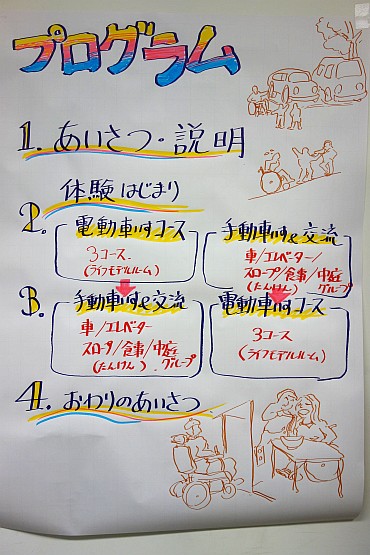 プログラム
1. あいさつ・説明
体験はじまり
2. 電動車いすコース
3コース
(ライフモデルルーム)
手動車いす&交流
車/エレベーター/
スロープ/食事/中庭
(たんけん) グループ
3. 手動車いす&交流
車/エレベーター
スロープ/食事/中庭
(たんけん). グループ
電動車いすコース
3コース
(ライフモデルルーム)
4. おわりのあいさつ